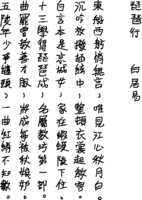 琵琶行　白居易
東船西舫悄無言，唯見江心秋月白。
沉吟放撥插絃中，整頓衣裳起斂容。
自言本是京城女，家在蝦蟆陵下住。
十三學得琵琶成，名屬教坊第一部。
曲罷曾教善才服，妝成每被秋娘妒。
五陵年少爭纏頭，一曲紅綃不知數。